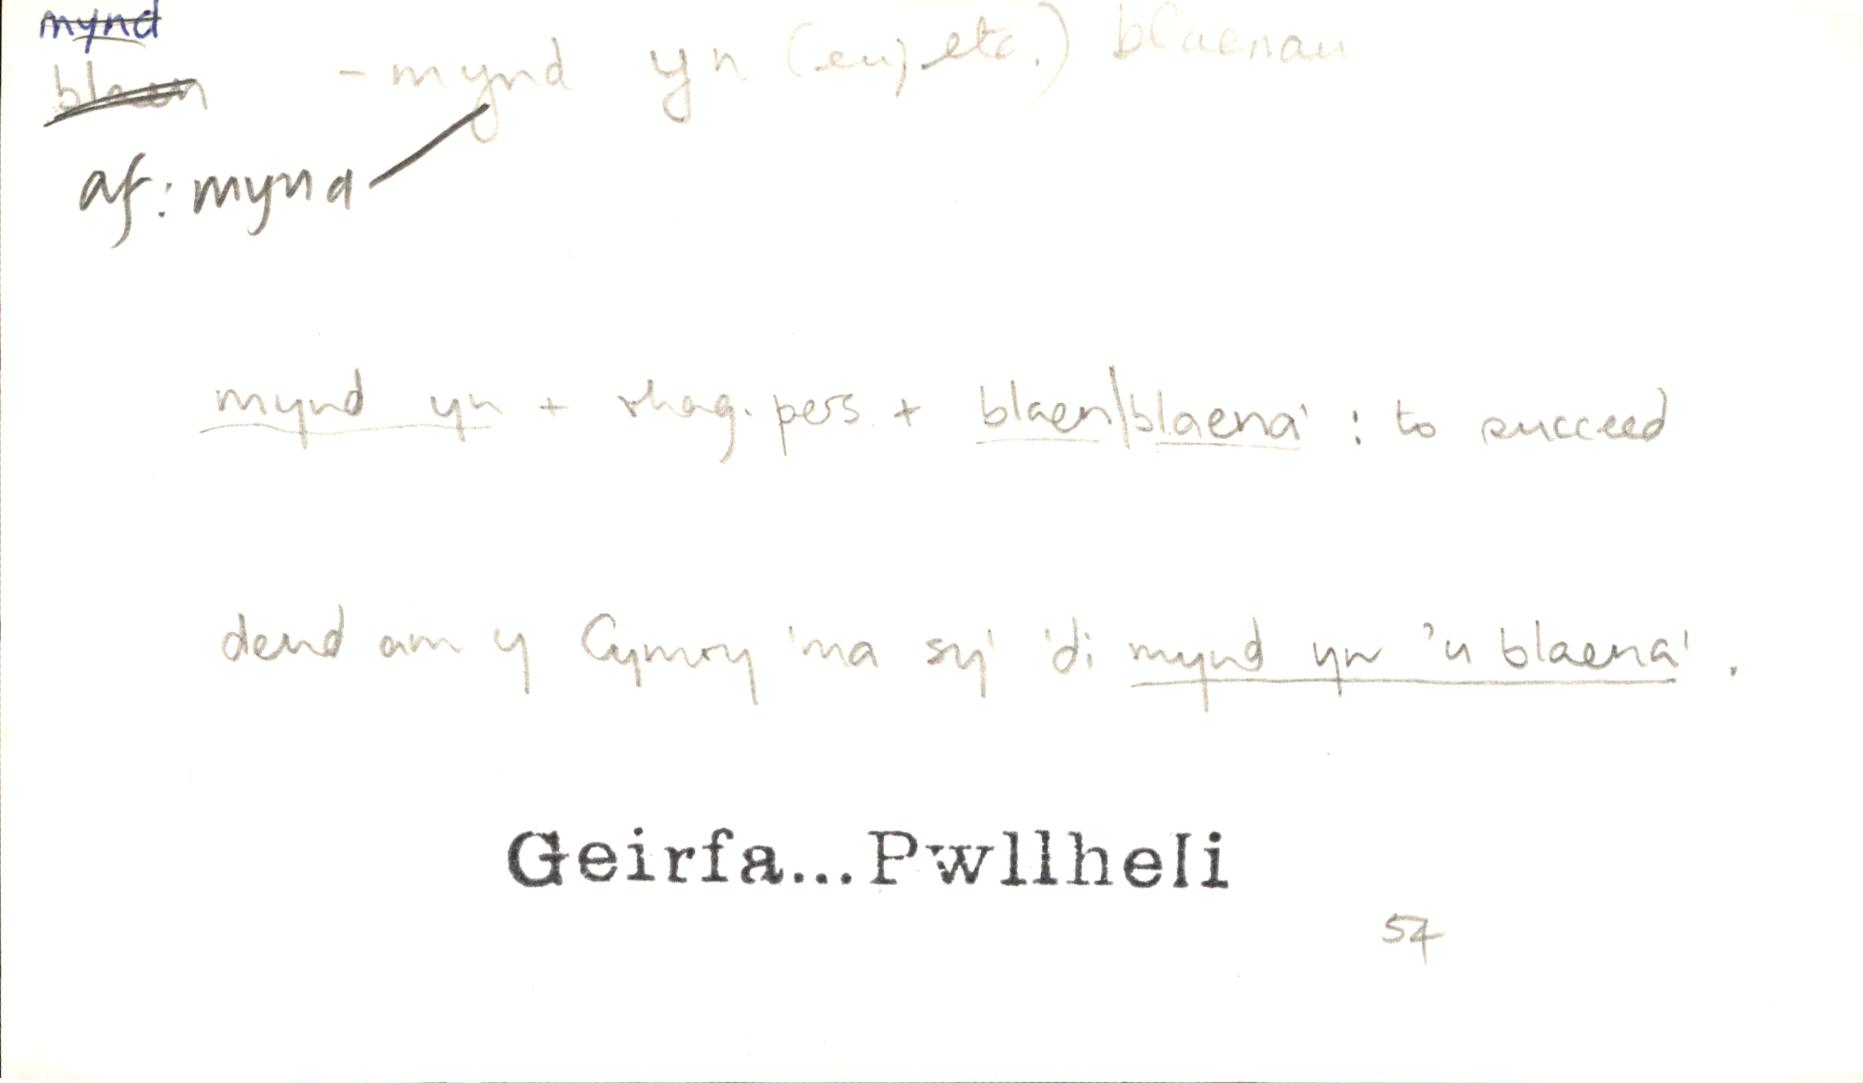 mynd
blaen - mynd yn (eu, etc.) blaenau
af: mynd
mynd yn + rhag. pers. + blaen/blaena' : to succeed
dend am y Cymry 'ma sy' 'di mynd yn 'u blaena'.
Geirfa...Pwllheli
54